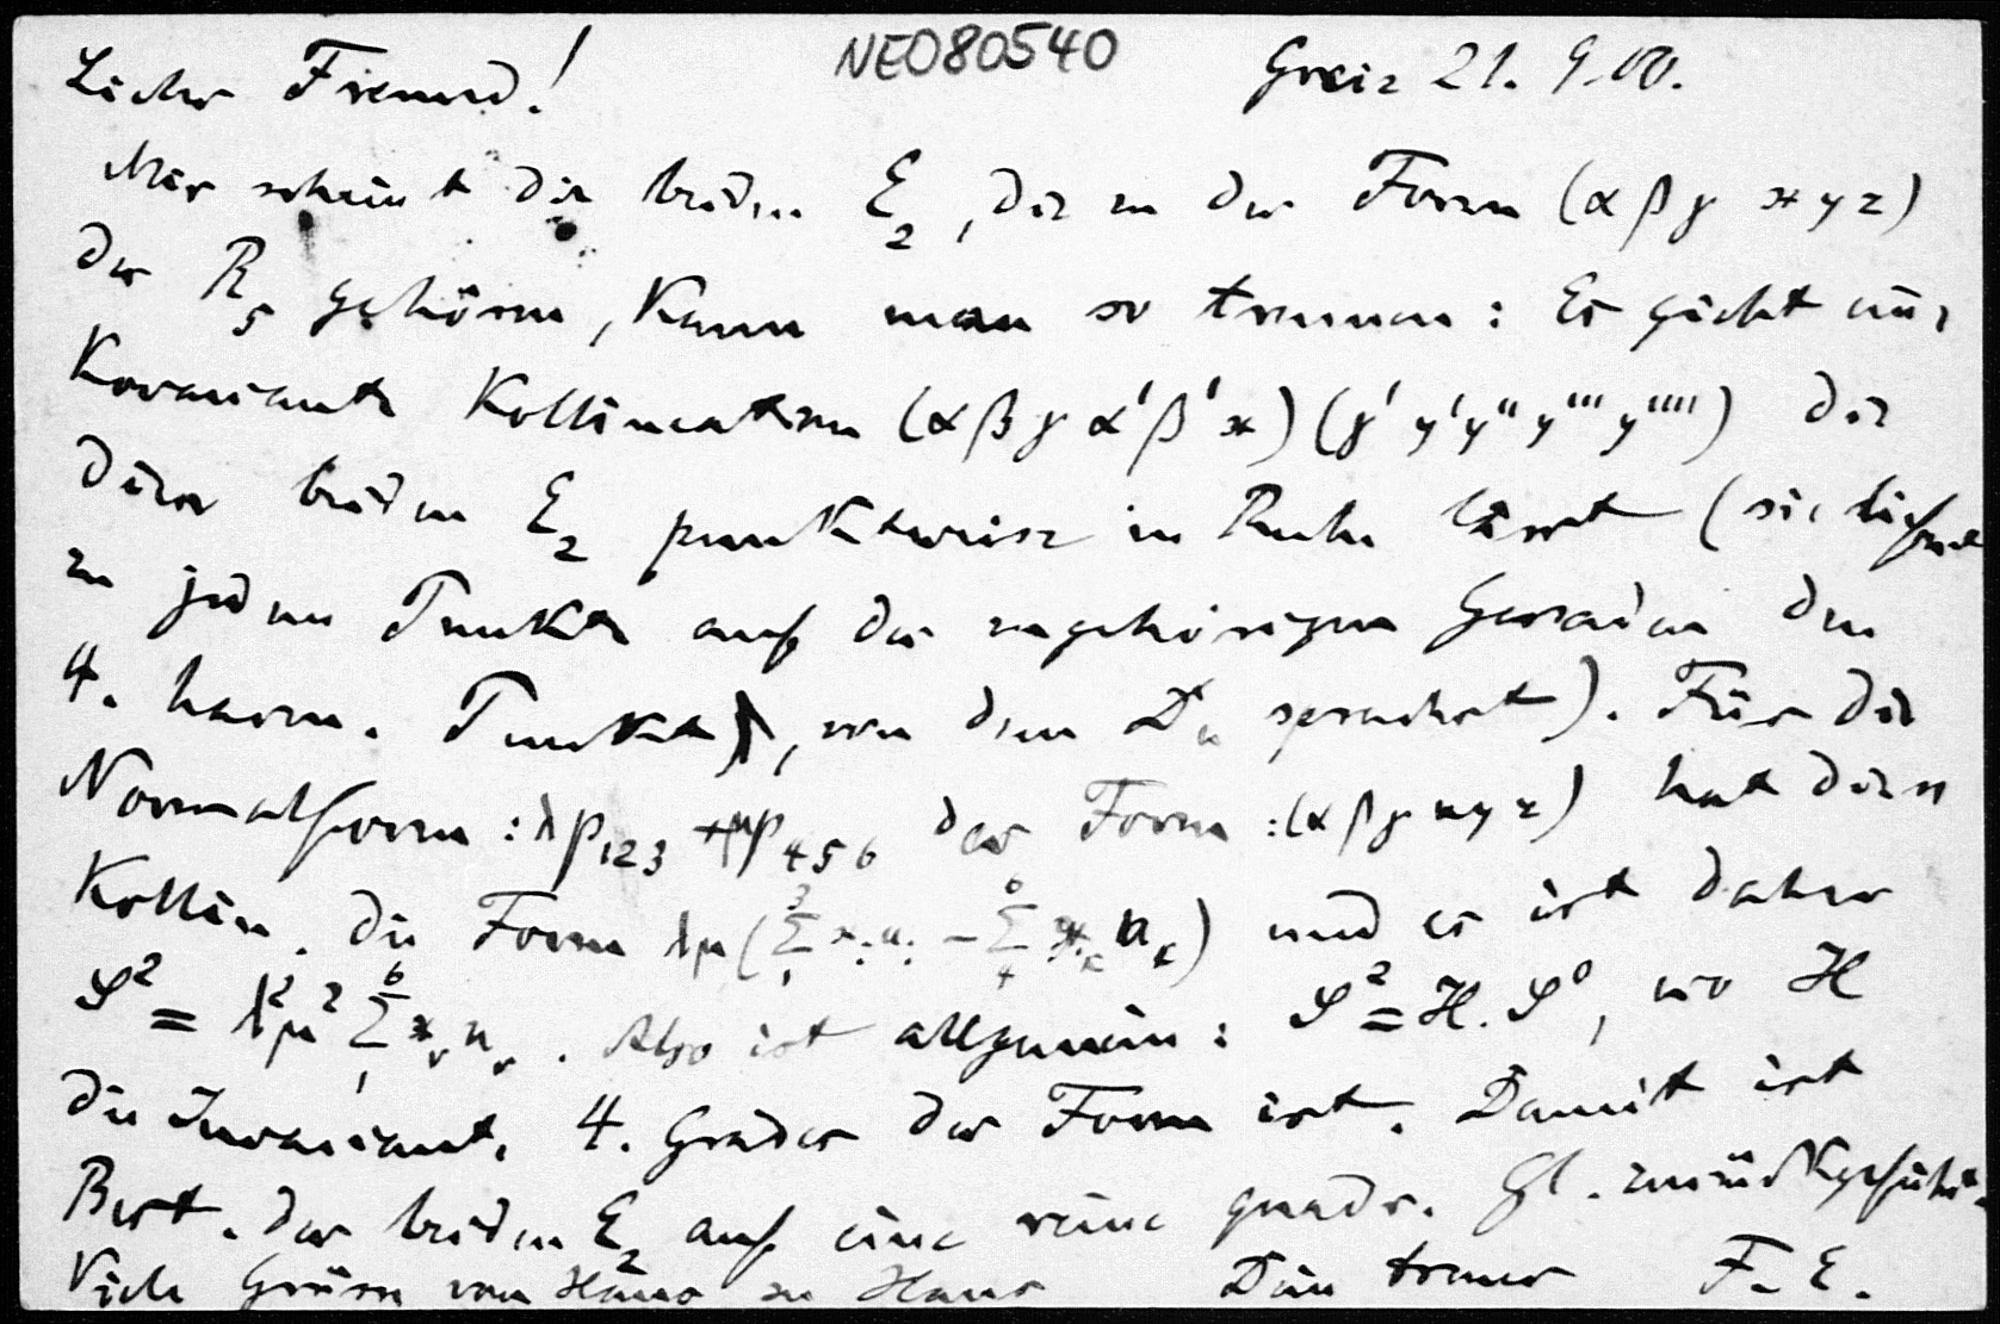 NE080540
Lieber Freund! Greiz 21. 9. 00.
Mir scheint die beiden E₂, die zu der Form (αβγ xyz)
der R₅ gehören, kann man so trennen: Es giebt eine
Kovariante Kollineation (αβγα'β'x)(γ'y'y''y'''y'''') die
diese beiden E₂ punktweise in Ruhe lässt (sie liefert
zu jedem Punkte auf der zugehörigen Geraden den
4. harm. Punkt, von dem Du sprachst). Für die
Normalform: λp₁₂₃ + μp₄₅₆ der Form: (αβγ xyz) hat diese
Kollin. die Form λμ(∑₁³ xᵢuᵢ - ∑₄⁶ xₖuₖ) und es ist daher
S² = λ²μ² ∑₁⁶ xᵥuᵥ. Also ist allgemein: S² = H. S⁰, wo H
die Invariante 4. Grades der Form ist. Damit ist
Best. der beiden E₂ auf eine reine quadr. Gl. zurückgeführt.
Viele Grüsse von Haus zu Haus Dein treuer F. E.